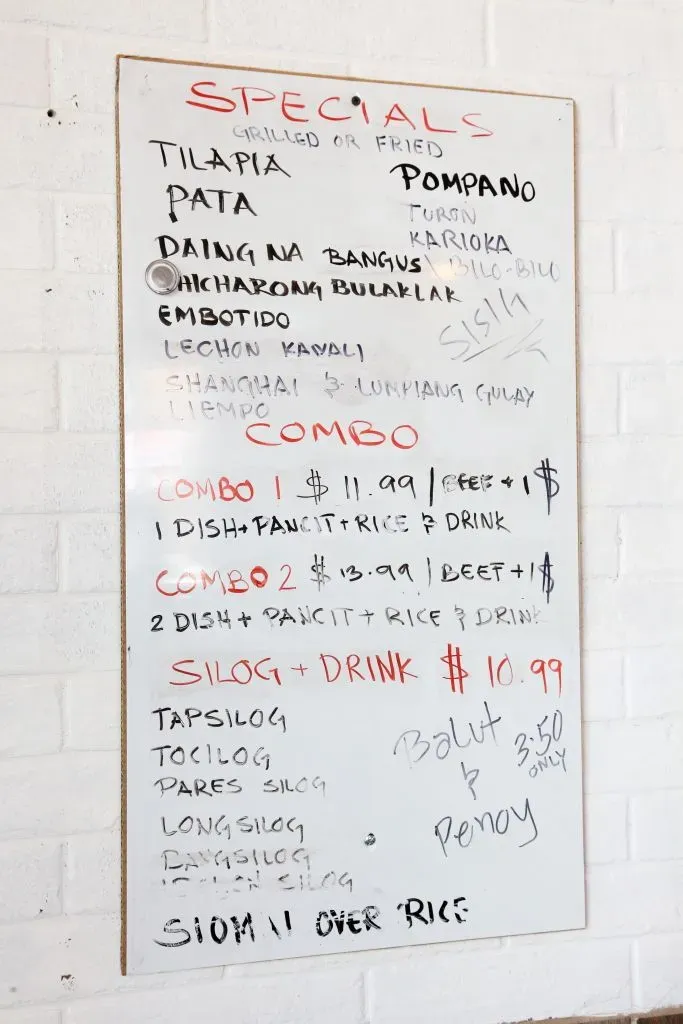 SPECIALS
GRILLED OR FRIED
TILAPIA
POMPANO
PATA
TURON
KARIOKA
DAING NA BANGUS
BILO-BILO
HICHARONG BULAKLAK
EMBOTIDO
SISIG
LECHON KAWALI
SHANGHAI & LUMPIANG GULAY
LIEMPO
COMBO
COMBO 1 $ 11.99 | BEEF + 1 $
1 DISH + PANCIT + RICE & DRINK
COMBO 2 $ 13.99 | BEEF + 1 $
2 DISH + PANCIT + RICE & DRINK
SILOG + DRINK $ 10.99
TAPSILOG
TOCILOG
PARES SILOG
LONGSILOG
BANGSILOG
SILOG
Balut & Penoy
3.50 ONLY
SIOMAI OVER RICE